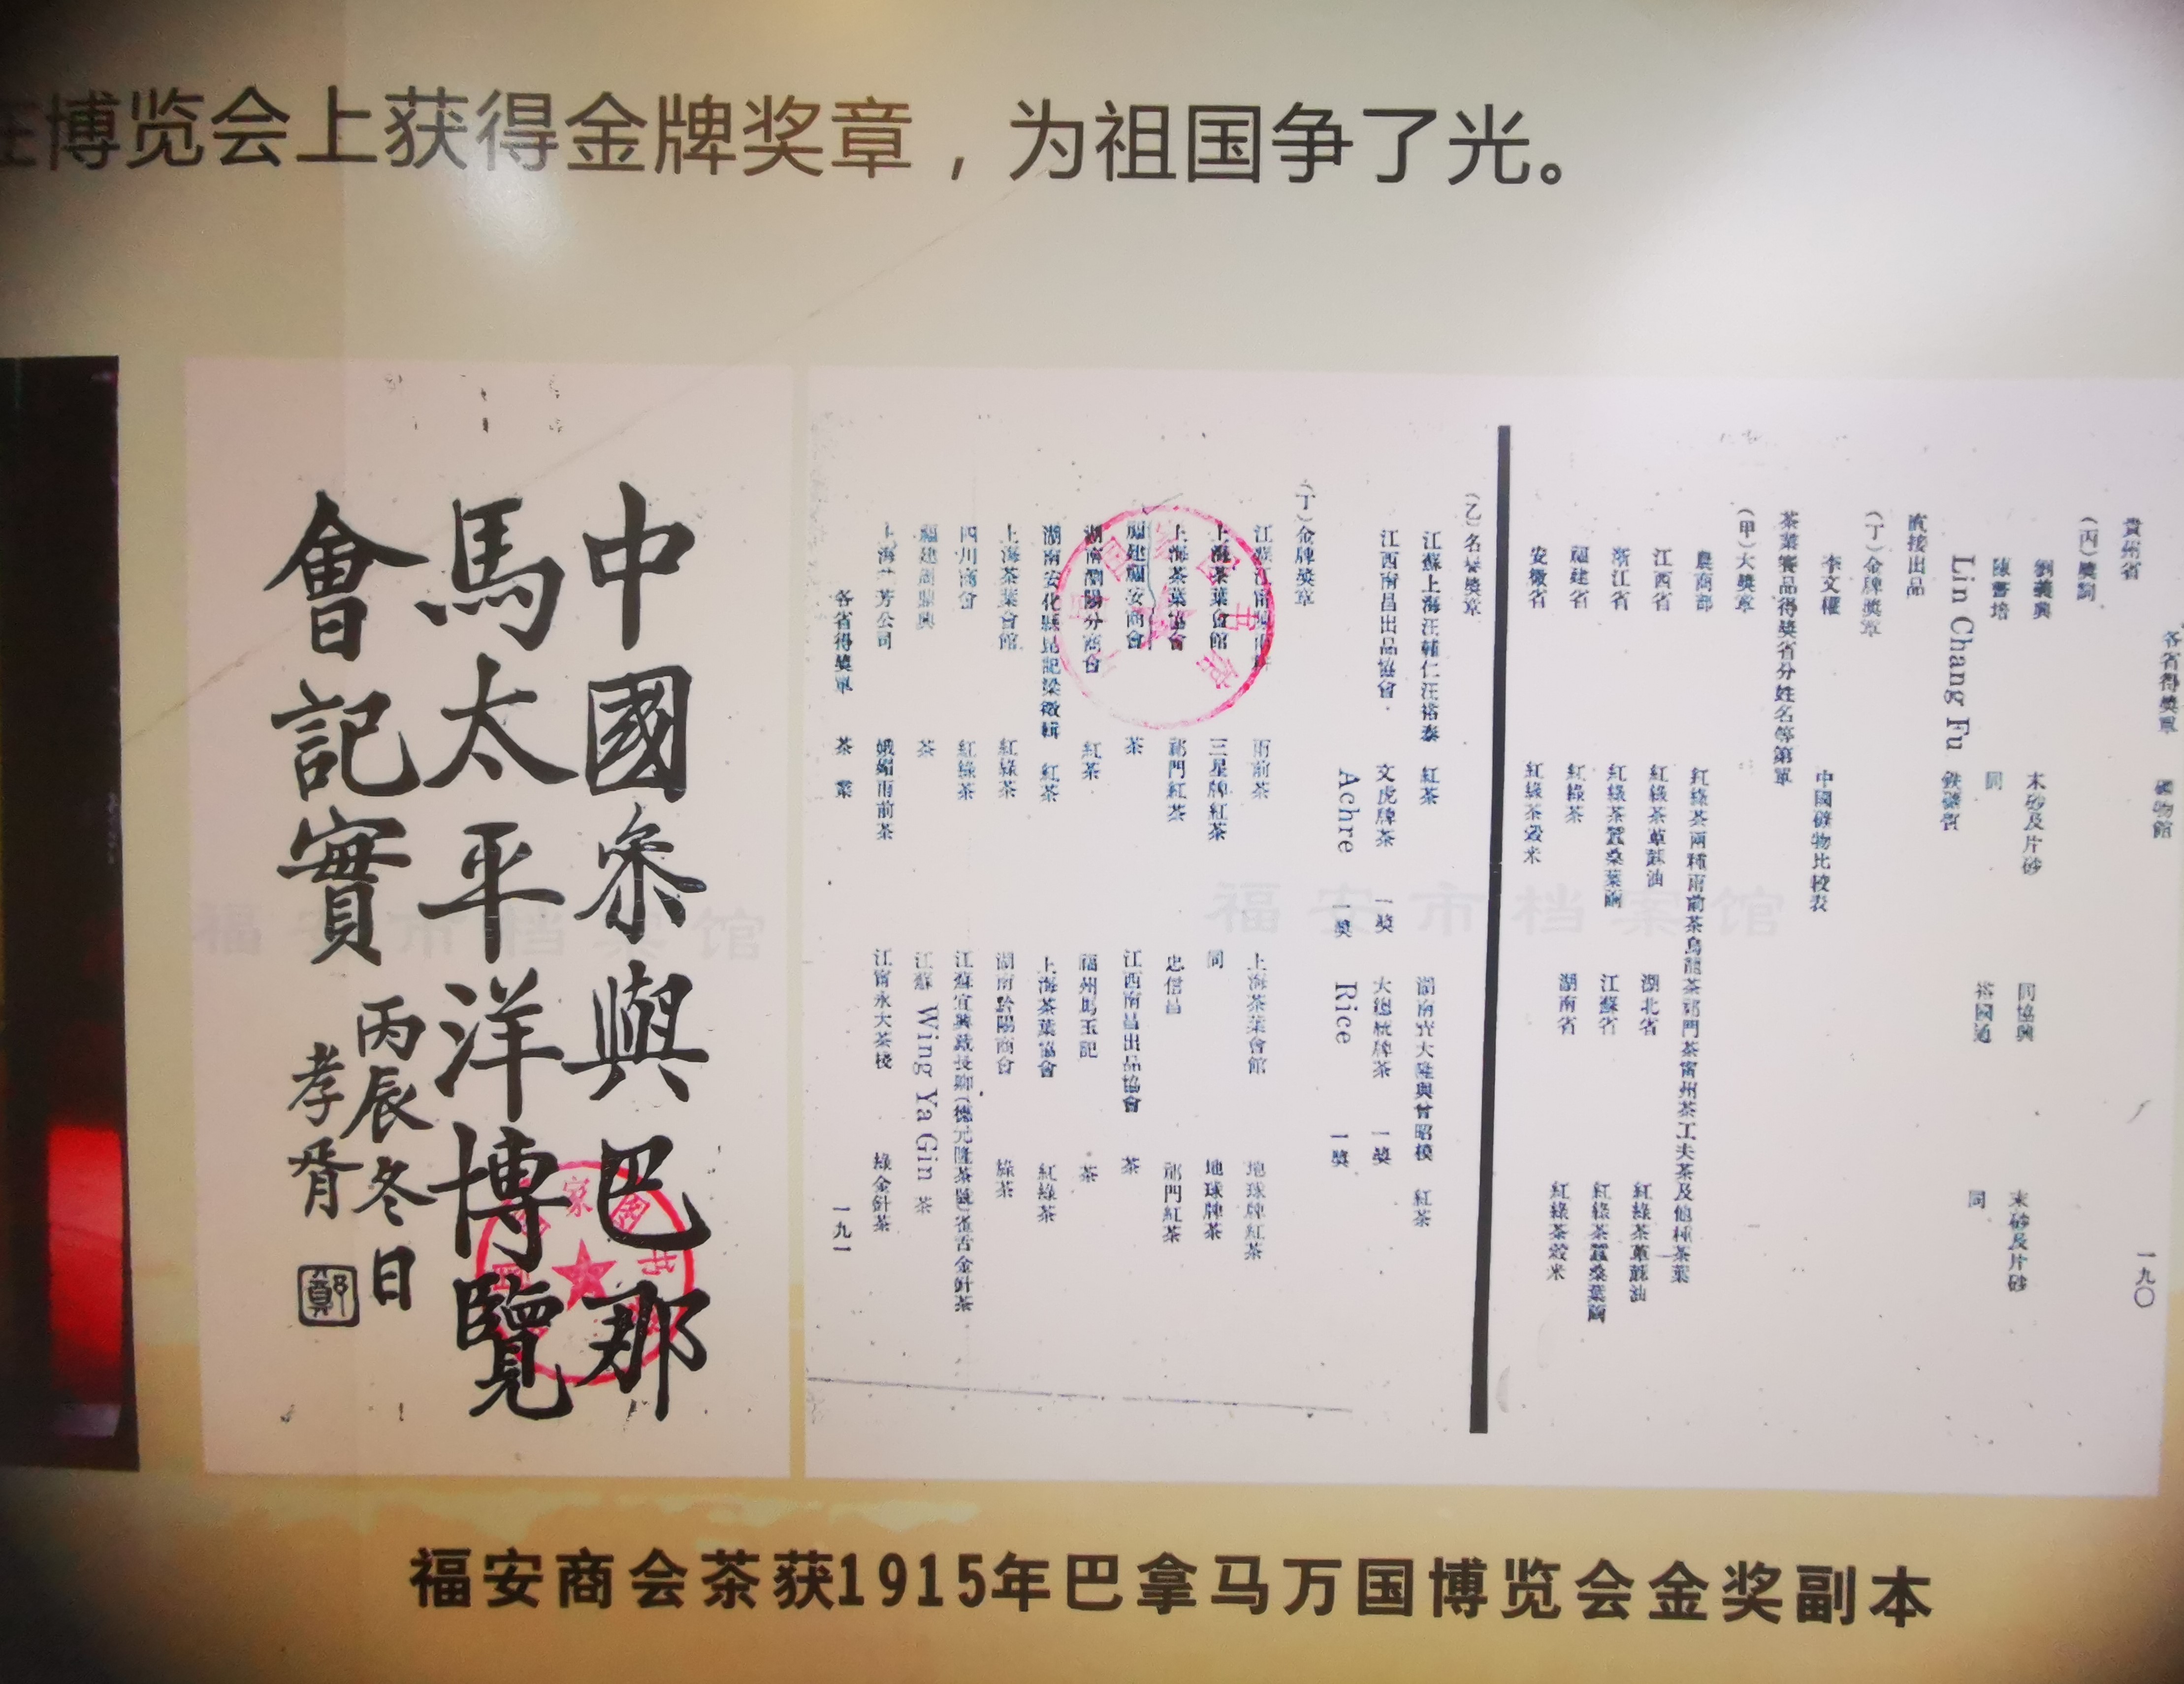 在博览会上获得金牌奖章，为祖国争了光。
中國叅與巴那
馬太平洋博覽
會記實
丙辰冬日
孝胥
鄭
各省得獎單 礦物館 一九〇
貴州省
(丙)獎詞
劉義興 末砂及片砂 同協興 末砂及片砂
陳薈培 同 裕國通 同
Lin Chang Fu 鉄礦質
直接出品
(丁)金牌獎章
李文權 中國礦物比較表
茶業賽品得獎省分姓名等第單
(甲)大獎章
農商部 紅綠茶兩種雨前茶烏龍茶祁門茶甯州茶工夫茶及他種茶葉
江西省 紅綠茶草蔴油 湖北省 紅綠茶草蔴油
浙江省 紅綠茶蠶桑葉繭 江蘇省 紅綠茶蠶桑葉繭
福建省 紅綠茶 湖南省 紅綠茶穀米
安徽省 紅綠茶穀米
(乙)名譽獎章
江蘇上海汪輔仁汪裕泰 紅茶 湖南 大隆與曾昭模 紅茶
江西南昌出品協會 文虎牌茶 一獎 大總統牌茶 一獎
Achre 一獎 Rice 一獎
(丁)金牌獎章
江蘇江甯 雨前茶 上海茶葉會館 地球牌紅茶
上海茶葉會館 三星牌紅茶 同 地球牌茶
上海茶葉協會 祁門紅茶 忠信昌 祁門紅茶
福建福安商會 茶 江西南昌出品協會 茶
湖南瀏陽分商會 紅茶 福州馬玉記 茶
湖南安化縣昆記梁徵輯 紅茶 上海茶葉協會 紅綠茶
上海茶葉會館 紅綠茶 湖南黔陽商會 綠茶
四川商會 紅綠茶 江蘇宜興戴長卿(德元隆茶號)雀舌金針茶
福建周鼎興 茶 江蘇 Wing Ya Gin 茶
上海 芳公司 娥媚雨前茶 江甯永大茶棧 綠金針茶
各省得獎單 茶業 一九一
福安市档案馆
福安市档案馆
福安商会茶获1915年巴拿马万国博览会金奖副本